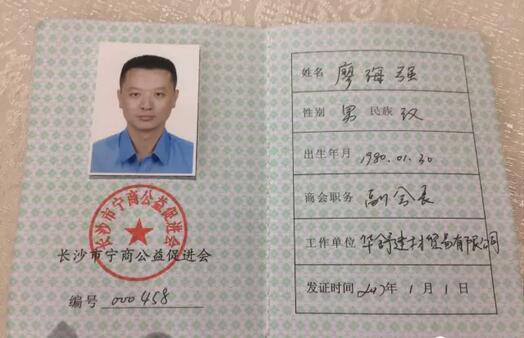 长沙市宁商公益促进会
长沙市宁商公益促进会
编号 000458
姓名 廖海强
性别 男 民族 汉
出生年月 1980.01.30
商会职务 副会长
工作单位 华舒建材贸易有限公司
发证时间 年1月1日